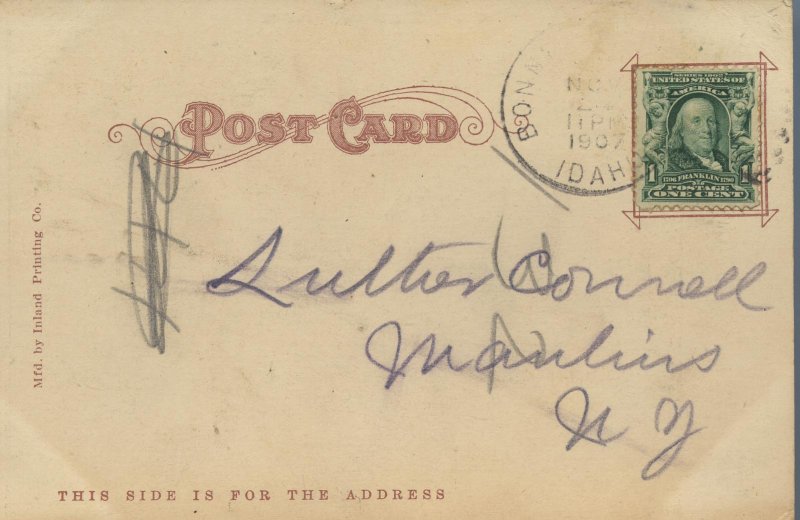 POST CARD
BONA
NO
11 PM
1907
IDAHO
SERIES 1902
UNITED STATES OF
AMERICA
1 1
1706 FRANKLIN 1790
POSTAGE
ONE CENT
Mfd. by Inland Printing Co.
Luther Connell
Manlius
N Y
THIS SIDE IS FOR THE ADDRESS